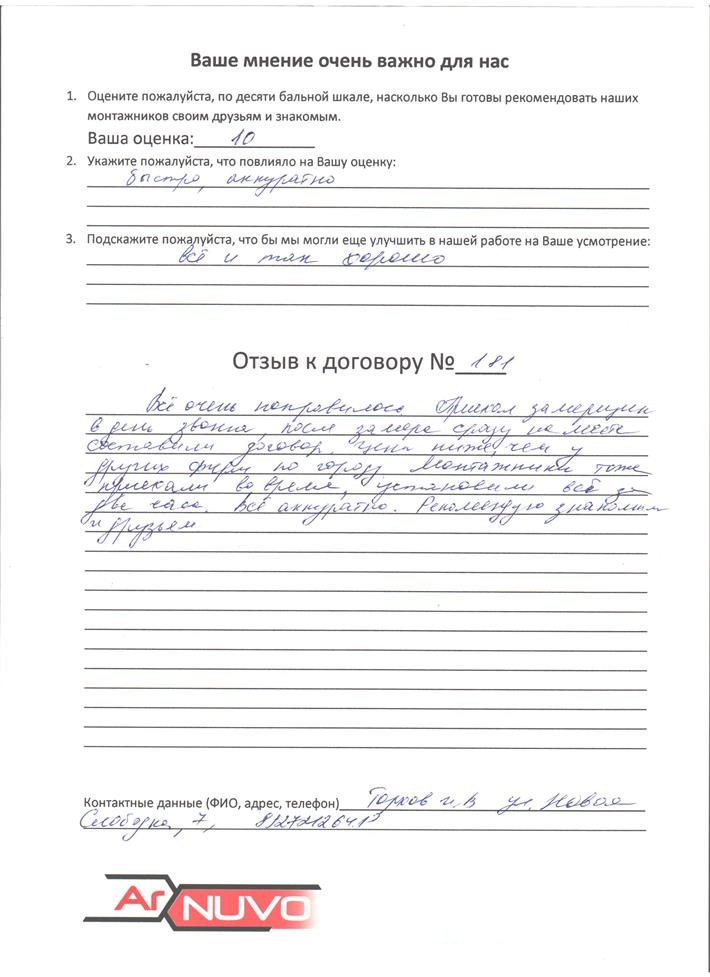 Ваше мнение очень важно для нас
1. Оцените пожалуйста, по десяти бальной шкале, насколько Вы готовы рекомендовать наших
монтажников своим друзьям и знакомым.
Ваша оценка: 10
2. Укажите пожалуйста, что повлияло на Вашу оценку:
быстро, аккуратно
3. Подскажите пожалуйста, что бы мы могли еще улучшить в нашей работе на Ваше усмотрение:
всё и так хорошо
Отзыв к договору № 181
Всё очень понравилось. Приехал замерщик
в день звонка, после замера сразу на месте
составили договор. Цена ниже, чем у
других фирм по городу. Монтажники тоже
приехали во время, установили всё за
два часа. Всё аккуратно. Рекомендую знакомым
и друзьям
Контактные данные (ФИО, адрес, телефон) И.В ул. Новая
Слободка, 7,
Ar NUVO